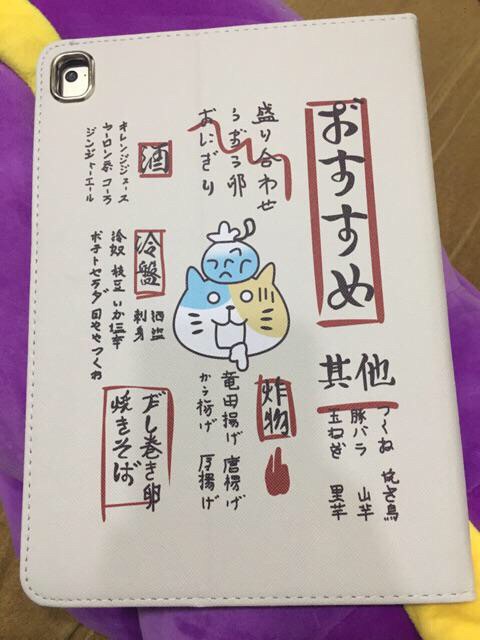 おすすめ
盛り合わせ
うずら卵
おにぎり
酒
オレンジジュース
ウーロン茶 コーラ
ジンジャーエール
冷盤
酒盗
刺身
冷奴 枝豆 いか
ポテトサラダ
其他
つくね 焼き鳥
豚バラ 山芋
玉ねぎ 里芋
炸物
竜田揚げ 唐揚げ
から揚げ 厚揚げ
だし巻き卵
焼きそば